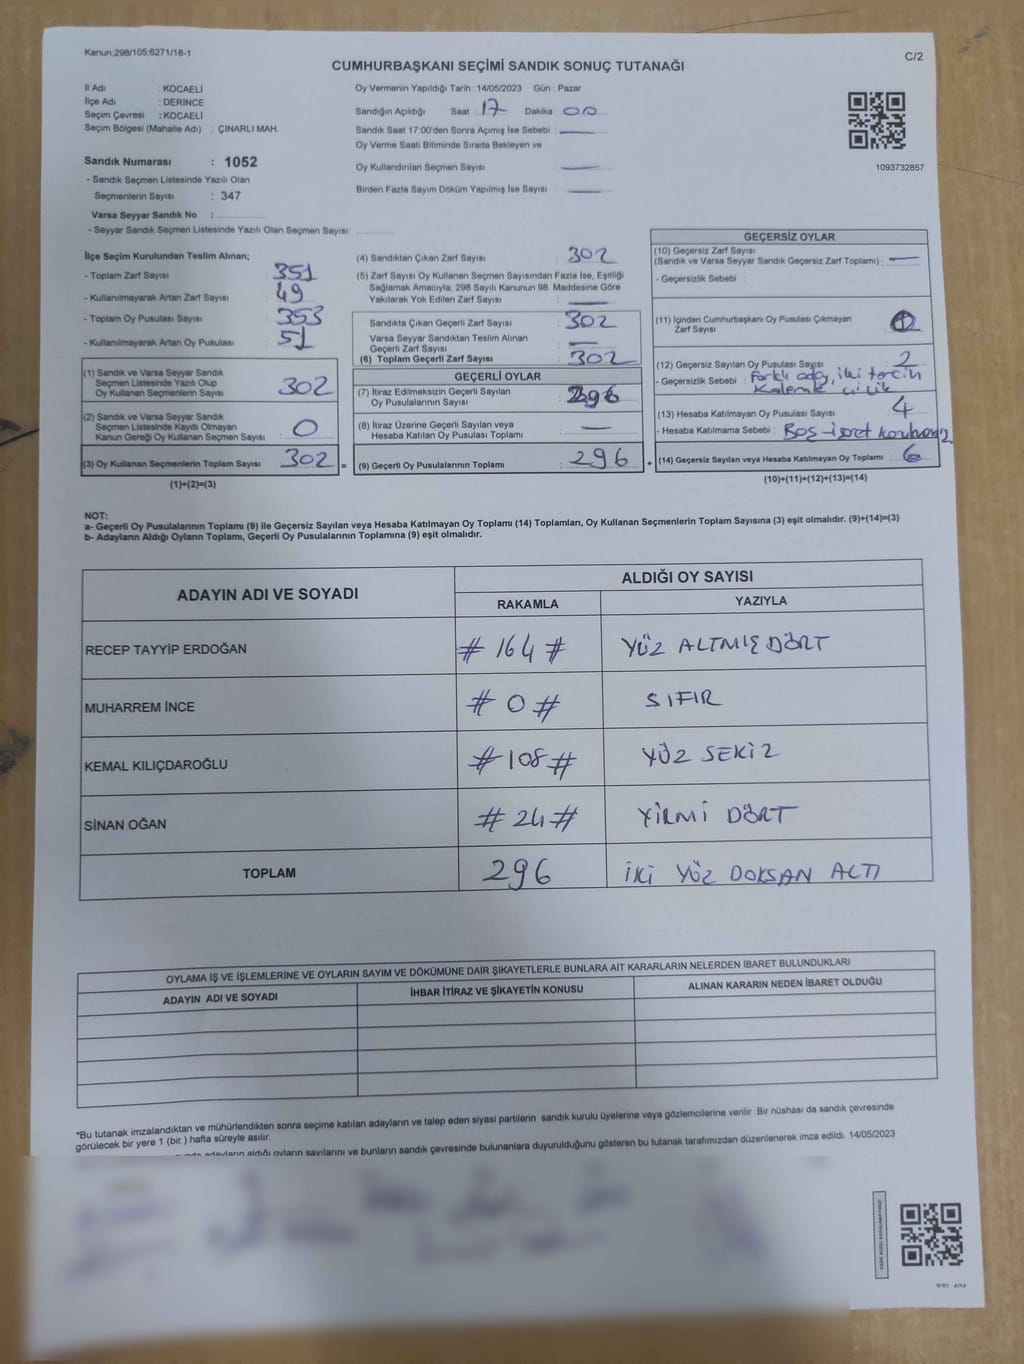 Kanun;298/105;6271/18-1
C/2
CUMHURBAŞKANI SEÇİMİ SANDIK SONUÇ TUTANAĞI
İl Adı : KOCAELİ
İlçe Adı : DERİNCE
Seçim Çevresi : KOCAELİ
Seçim Bölgesi (Mahalle Adı) : ÇINARLI MAH.
Sandık Numarası : 1052
- Sandık Seçmen Listesinde Yazılı Olan
Seçmenlerin Sayısı : 347
Varsa Seyyar Sandık No :
- Seyyar Sandık Seçmen Listesinde Yazılı Olan Seçmen Sayısı:
Oy Vermenin Yapıldığı Tarih : 14/05/2023 Gün : Pazar
Sandığın Açıldığı Saat : 17 Dakika : 00
Sandık Saat 17:00'den Sonra Açımış İse Sebebi : —
Oy Verme Saati Bitiminde Sırada Bekleyen ve
Oy Kullandırılan Seçmen Sayısı : —
Birden Fazla Sayım Döküm Yapılmış İse Sayısı : —
1093732857
İlçe Seçim Kurulundan Teslim Alınan;
- Toplam Zarf Sayısı : 351
- Kullanılmayarak Artan Zarf Sayısı : 49
- Toplam Oy Pusulası Sayısı : 353
- Kullanılmayarak Artan Oy Pusulası : 51
(1) Sandık ve Varsa Seyyar Sandık
Seçmen Listesinde Yazılı Olup
Oy Kullanan Seçmenlerin Sayısı : 302
(2) Sandık ve Varsa Seyyar Sandık
Seçmen Listesinde Kayıtlı Olmayan
Kanun Gereği Oy Kullanan Seçmen Sayısı : 0
(3) Oy Kullanan Seçmenlerin Toplam Sayısı : 302 =
(1)+(2)=(3)
(4) Sandıktan Çıkan Zarf Sayısı : 302
(5) Zarf Sayısı Oy Kullanan Seçmen Sayısından Fazla İse, Eşitliği
Sağlamak Amacıyla, 298 Sayılı Kanunun 98. Maddesine Göre
Yakılarak Yok Edilen Zarf Sayısı : —
Sandıkta Çıkan Geçerli Zarf Sayısı : 302
Varsa Seyyar Sandıktan Teslim Alınan
Geçerli Zarf Sayısı : —
(6) Toplam Geçerli Zarf Sayısı : 302
GEÇERLİ OYLAR
(7) İtiraz Edilmeksizin Geçerli Sayılan
Oy Pusulalarının Sayısı : 296
(8) İtiraz Üzerine Geçerli Sayılan veya
Hesaba Katılan Oy Pusulası Toplamı : —
(9) Geçerli Oy Pusulalarının Toplamı : 296 +
GEÇERSİZ OYLAR
(10) Geçersiz Zarf Sayısı
(Sandık ve Varsa Seyyar Sandık Geçersiz Zarf Toplamı) : —
- Geçersizlik Sebebi :
(11) İçinden Cumhurbaşkanı Oy Pusulası Çıkmayan
Zarf Sayısı :
(12) Geçersiz Sayılan Oy Pusulası Sayısı : 2
- Geçersizlik Sebebi : Farklı aday, iki tercih
Kalemle
(13) Hesaba Katılmayan Oy Pusulası Sayısı : 4
- Hesaba Katılmama Sebebi : Boş-işret
(14) Geçersiz Sayılan veya Hesaba Katılmayan Oy Toplamı : 6
(10)+(11)+(12)+(13)=(14)
NOT:
a- Geçerli Oy Pusulalarının Toplamı (9) ile Geçersiz Sayılan veya Hesaba Katılmayan Oy Toplamı (14) Toplamları, Oy Kullanan Seçmenlerin Toplam Sayısına (3) eşit olmalıdır. (9)+(14)=(3)
b- Adayların Aldığı Oyların Toplamı, Geçerli Oy Pusulalarının Toplamına (9) eşit olmalıdır.
ADAYIN ADI VE SOYADI
ALDIĞI OY SAYISI
RAKAMLA YAZIYLA
RECEP TAYYİP ERDOĞAN # 164 # YÜZ ALTMIŞ DÖRT
MUHARREM İNCE # 0 # SIFIR
KEMAL KILIÇDAROĞLU # 108 # YÜZ SEKİZ
SİNAN OĞAN # 24 # YİRMİ DÖRT
TOPLAM 296 İKİ YÜZ DOKSAN ALTI
OYLAMA İŞ VE İŞLEMLERİNE VE OYLARIN SAYIM VE DÖKÜMÜNE DAİR ŞİKAYETLERLE BUNLARA AİT KARARLARIN NELERDEN İBARET BULUNDUKLARI
ADAYIN ADI VE SOYADI İHBAR İTİRAZ VE ŞİKAYETİN KONUSU ALINAN KARARIN NEDEN İBARET OLDUĞU
*Bu tutanak imzalandıktan ve mühürlendikten sonra seçime katılan adayların ve talep eden siyasi partilerin sandık kurulu üyelerine veya gözlemcilerine verilir. Bir nüshası da sandık çevresinde
görülecek bir yere 1 (bir ) hafta süreyle asılır.
adayların aldığı oyların sayılarını ve bunların sandık çevresinde bulunanlara duyurulduğunu gösteren bu tutanak tarafımızdan düzenlenerek imza edildi. 14/05/2023